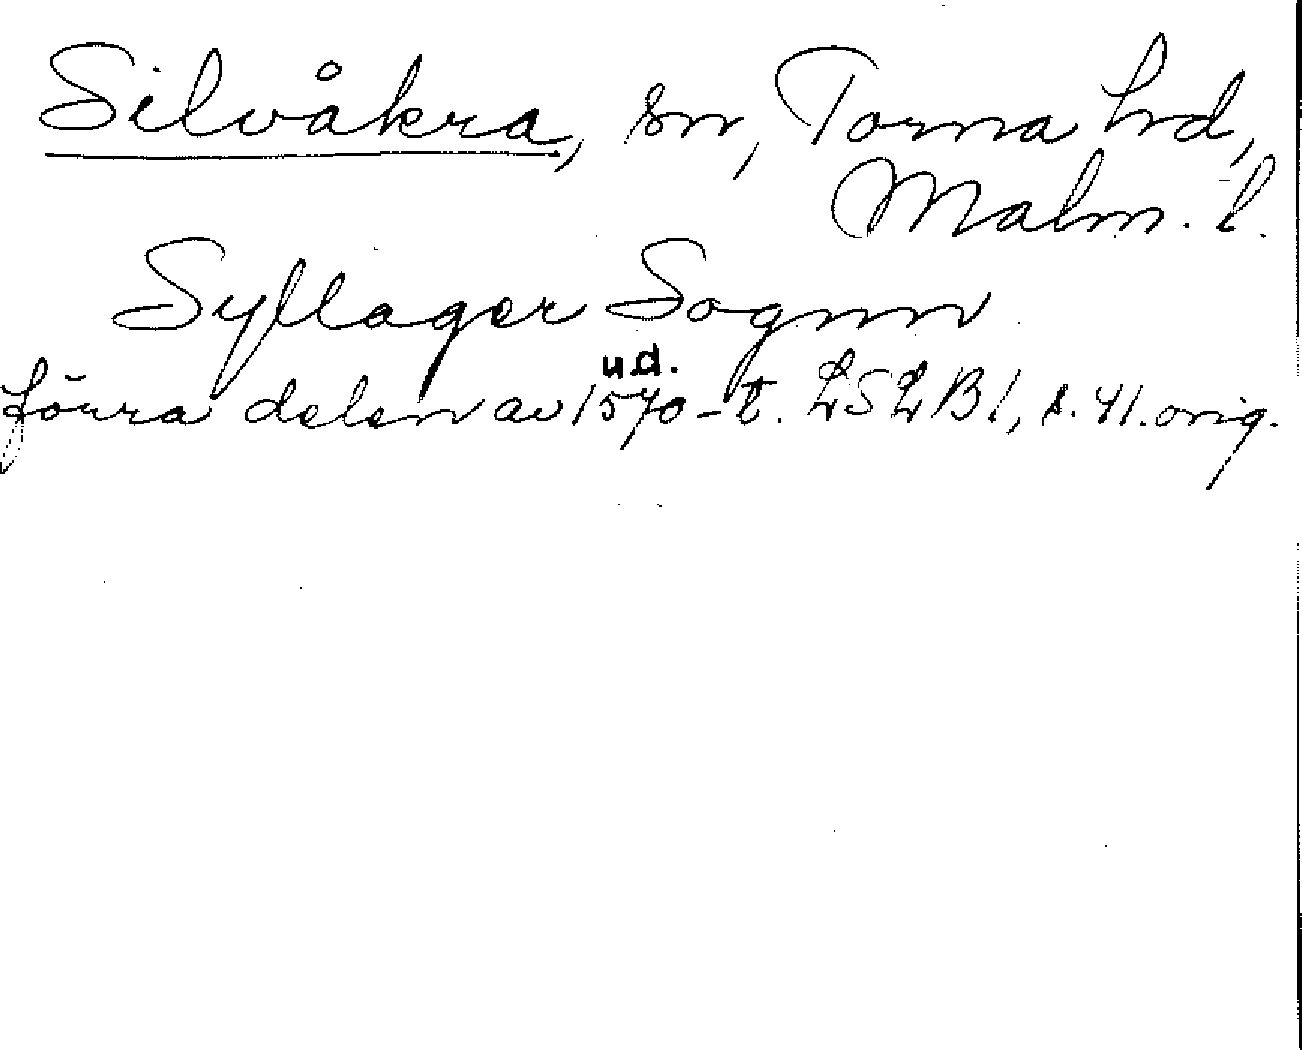 Silvåkra, sn, Torna hd,
Malm. l.
Syllager Sognn
u.d.
förra delen av 1570-t. LSLB1, s. 41. orig.